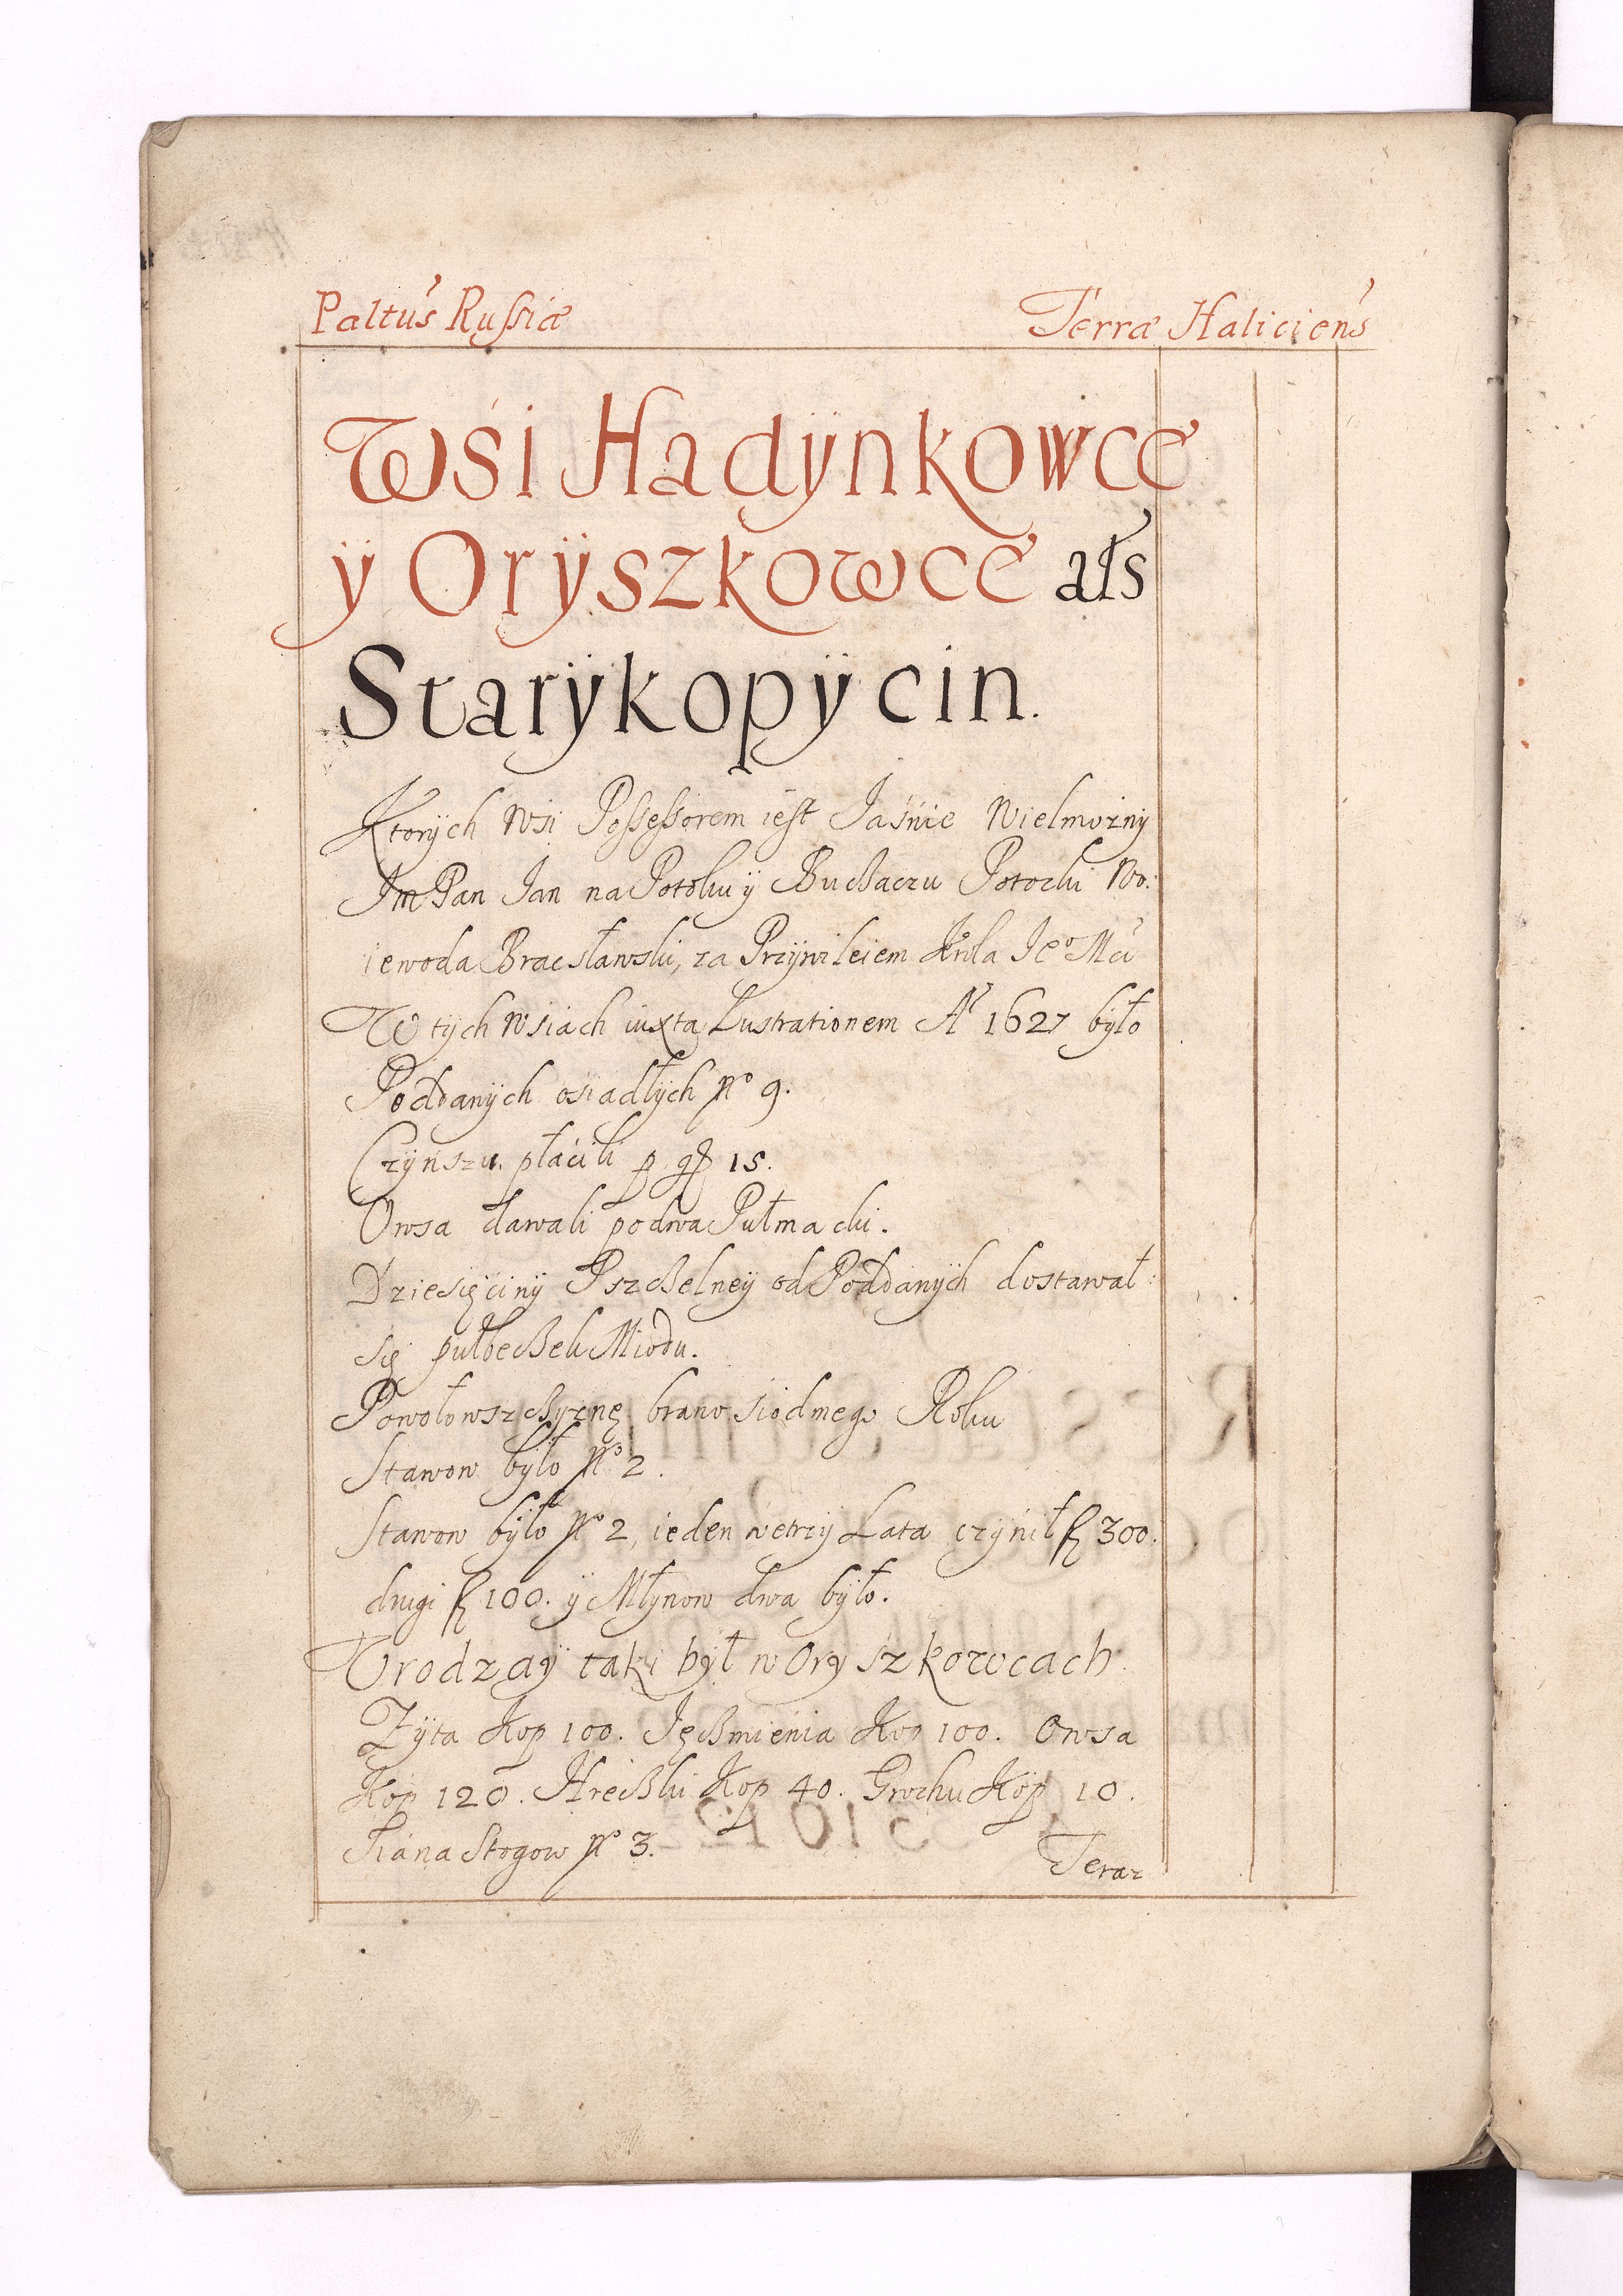 Paltus Russiæ Terræ Haliciens
Wsi Hadÿnkowce
ÿ Orÿszkowce als
Starÿkopÿcin.
Ktorÿch Wsi Possessorem iest Jaśnie Wielmożnÿ
Jm Pan Jan na Potoku ÿ Buczaczu Potocki Wo:
iewoda Bracsławski, za Przÿwileiem Kro̊la Jeº Mći
W tÿch Wsiach iuxta Lustrationem Aº 1627 bÿło
Poddanÿch osiadłÿch Nº 9.
Czÿnszu płacili p gß 15.
Owsa dawali po dwa Pułmacki.
Dziesięcinÿ Pszczelneÿ od Poddanÿch dostawał:
się pułbeczek Miodu.
Powołowszczyznę brano siodmego Roku
Stawow bÿło Nº 2.
Stawow bÿło Nº 2, ieden we trzÿ Lata czÿnił fl 300.
drugi fl 100. ÿ Młÿnow dwa bÿło.
Urodzaÿ taki bÿł w Oryszkowcach.
Żÿta Kop 100. Jęczmienia Kop 100. Owsa
Kop 120. Hreczki Kop 40. Grochu Kop 10.
Siana Stogow Nº 3.
Teraz